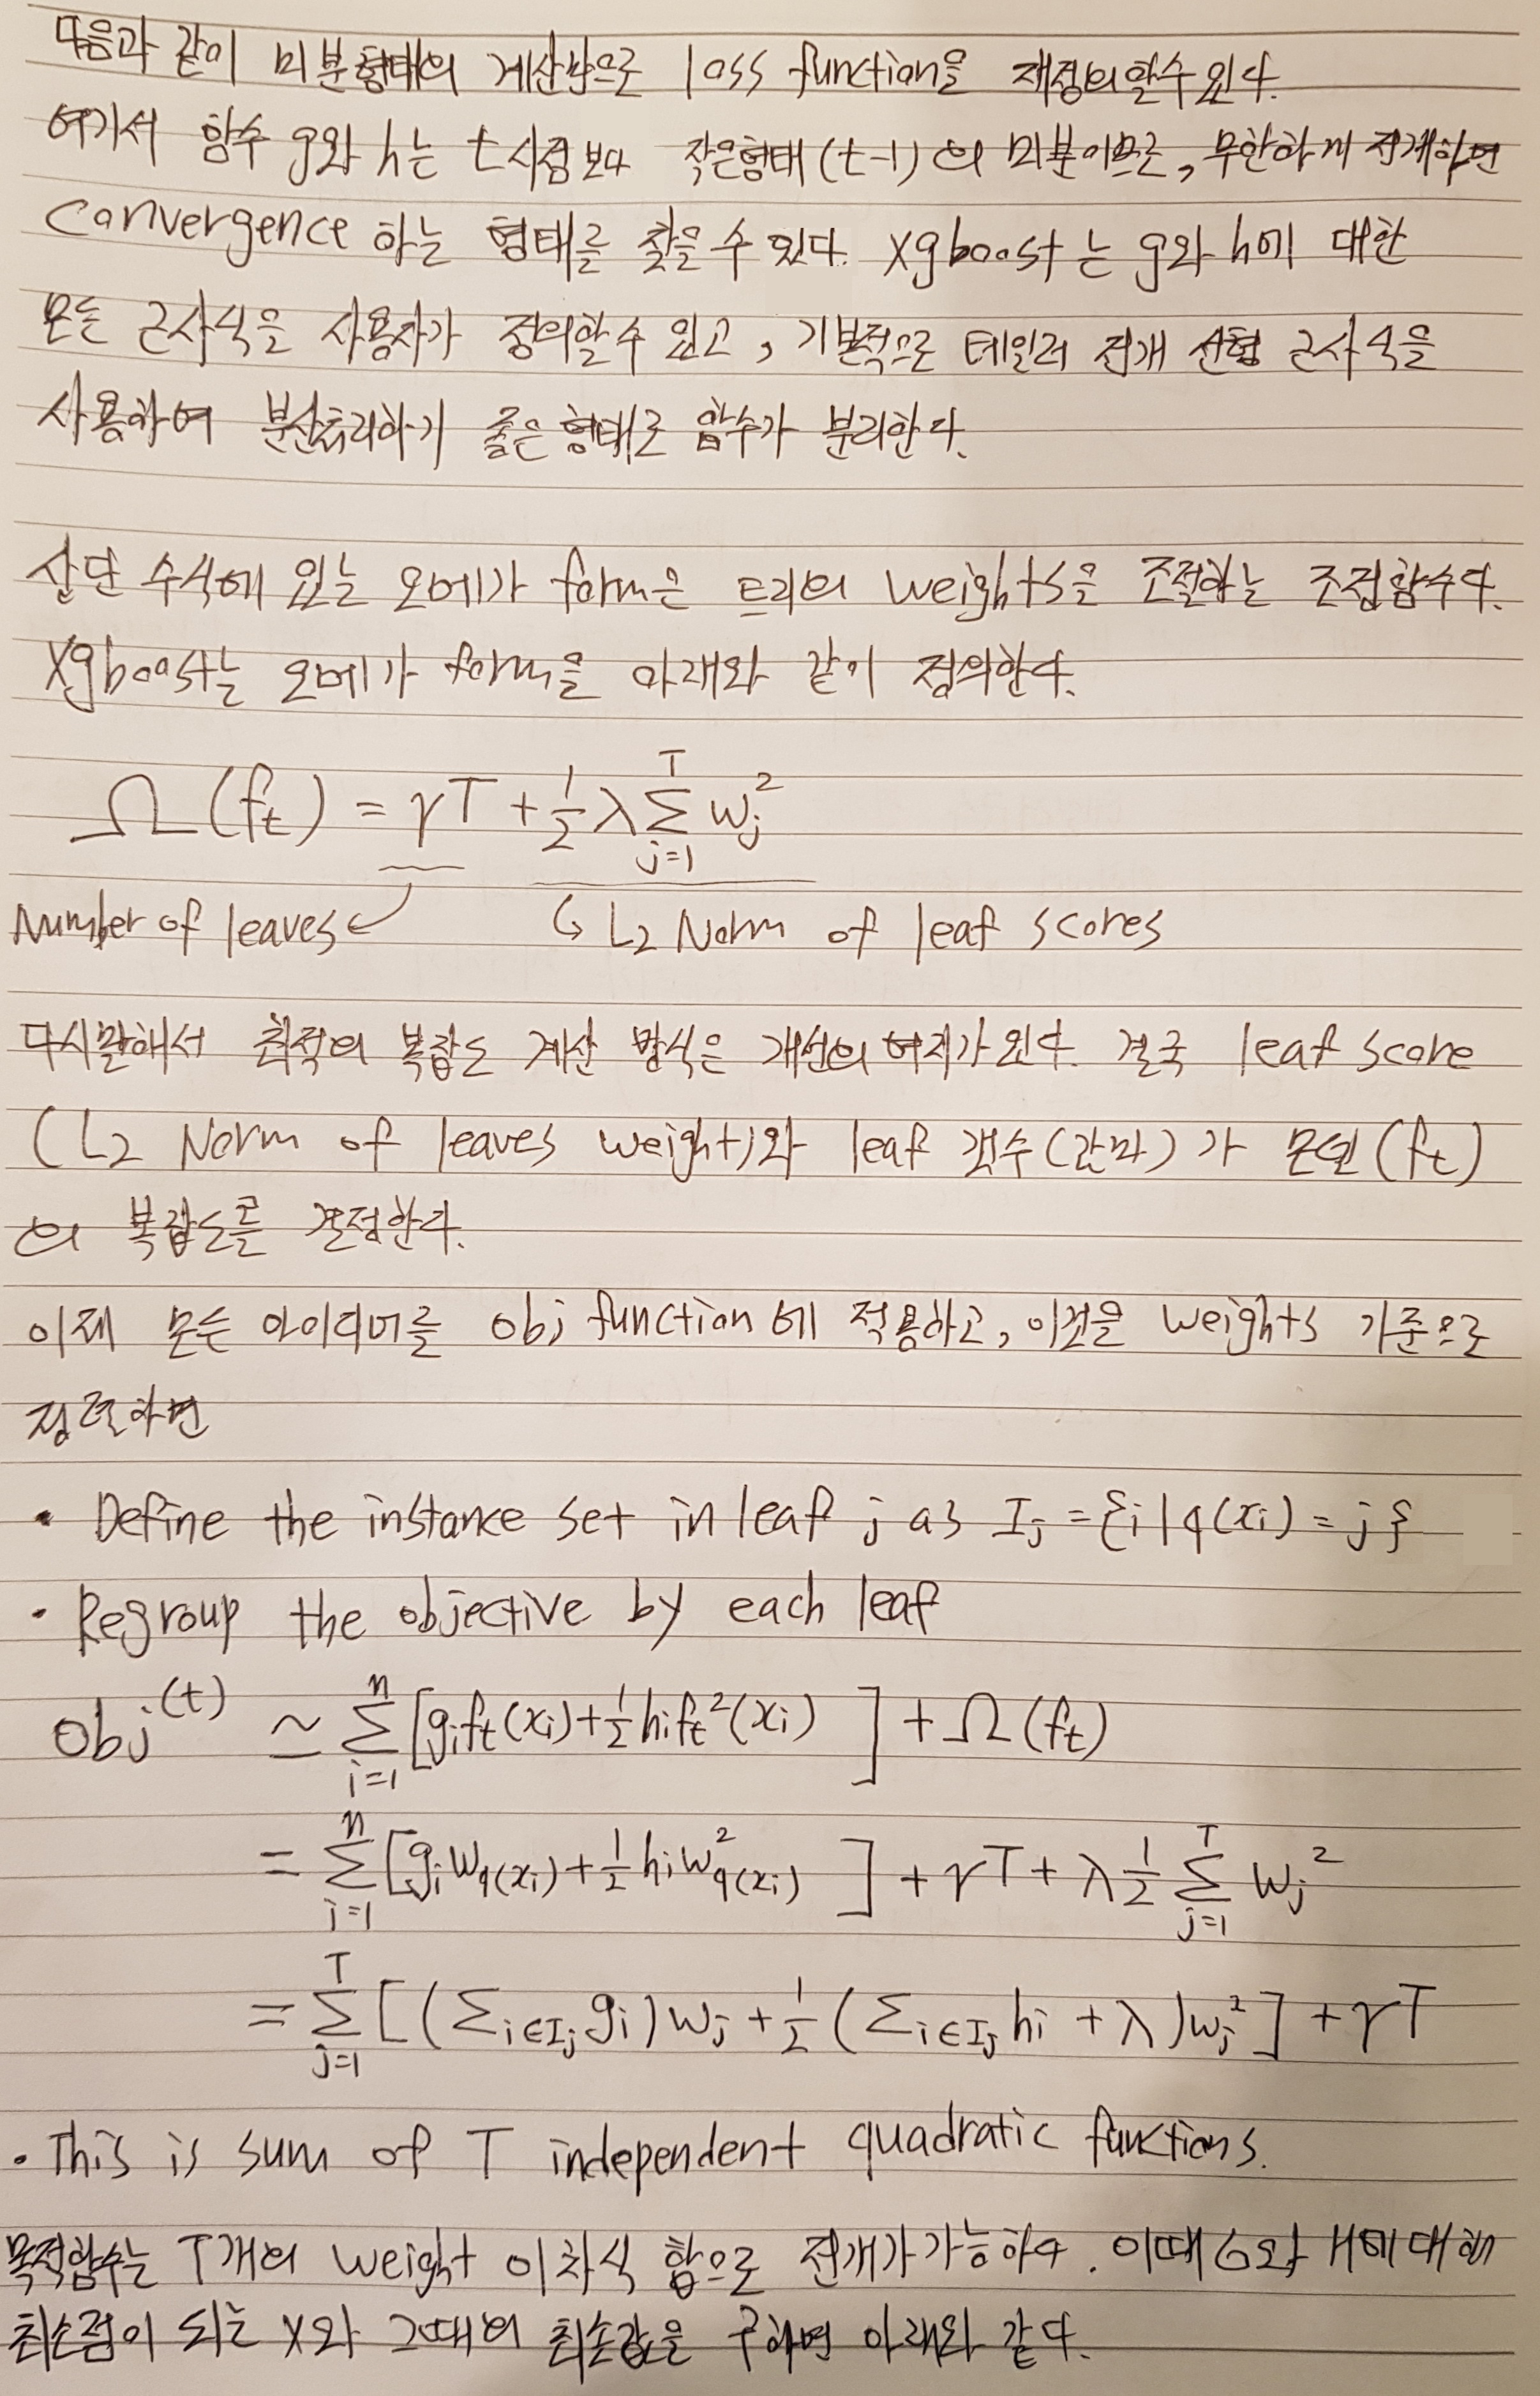 다음과 같이 미분형태의 계산만으로 loss function을 재정의할수있다.
여기서 함수 g와 h는 t시점보다 작은형태(t-1)의 미분이므로, 무한하게 전개하면
Convergence 하는 형태를 찾을 수 있다. Xgboost는 g와 h에 대한
모든 근사식을 사용자가 정의할수 있고, 기본적으로 테일러 전개 선형 근사식을
사용하여 분산처리하기 좋은 형태로 함수가 분리한다.
상단 수식에 있는 오메가 form은 트리의 weights을 조절하는 조절함수다.
Xgboost는 오메가 form을 아래와 같이 정의한다.
Ω(f_t) = γT + ½ λ Σ_{j=1}^{T} w_j²
Number of leaves ↩ ↳ L2 Norm of leaf scores
다시말해서 최적의 복잡도 계산 방식은 개선의 여지가 있다. 결국 leaf score
(L2 Norm of leaves weight)와 leaf 갯수(감마)가 모델(f_t)
의 복잡도를 결정한다.
이제 모든 아이디어를 obj function에 적용하고, 이것을 weights 기준으로
정렬하면
• Define the instance set in leaf j as I_j = {i | q(x_i) = j}
• Regroup the objective by each leaf
Obj^(t) ≃ Σ_{i=1}^{n} [g_i f_t(x_i) + ½ h_i f_t²(x_i)] + Ω(f_t)
= Σ_{i=1}^{n} [g_i w_{q(x_i)} + ½ h_i w²_{q(x_i)}] + γT + λ ½ Σ_{j=1}^{T} w_j²
= Σ_{j=1}^{T} [(Σ_{i∈I_j} g_i) w_j + ½ (Σ_{i∈I_j} h_i + λ) w_j²] + γT
• This is sum of T independent quadratic functions.
목적함수는 T개의 weight 이차식 합으로 전개가 가능하다. 이때 G와 H에 대해
최소점이 되는 X와 그때의 최솟값을 구하면 아래와 같다.